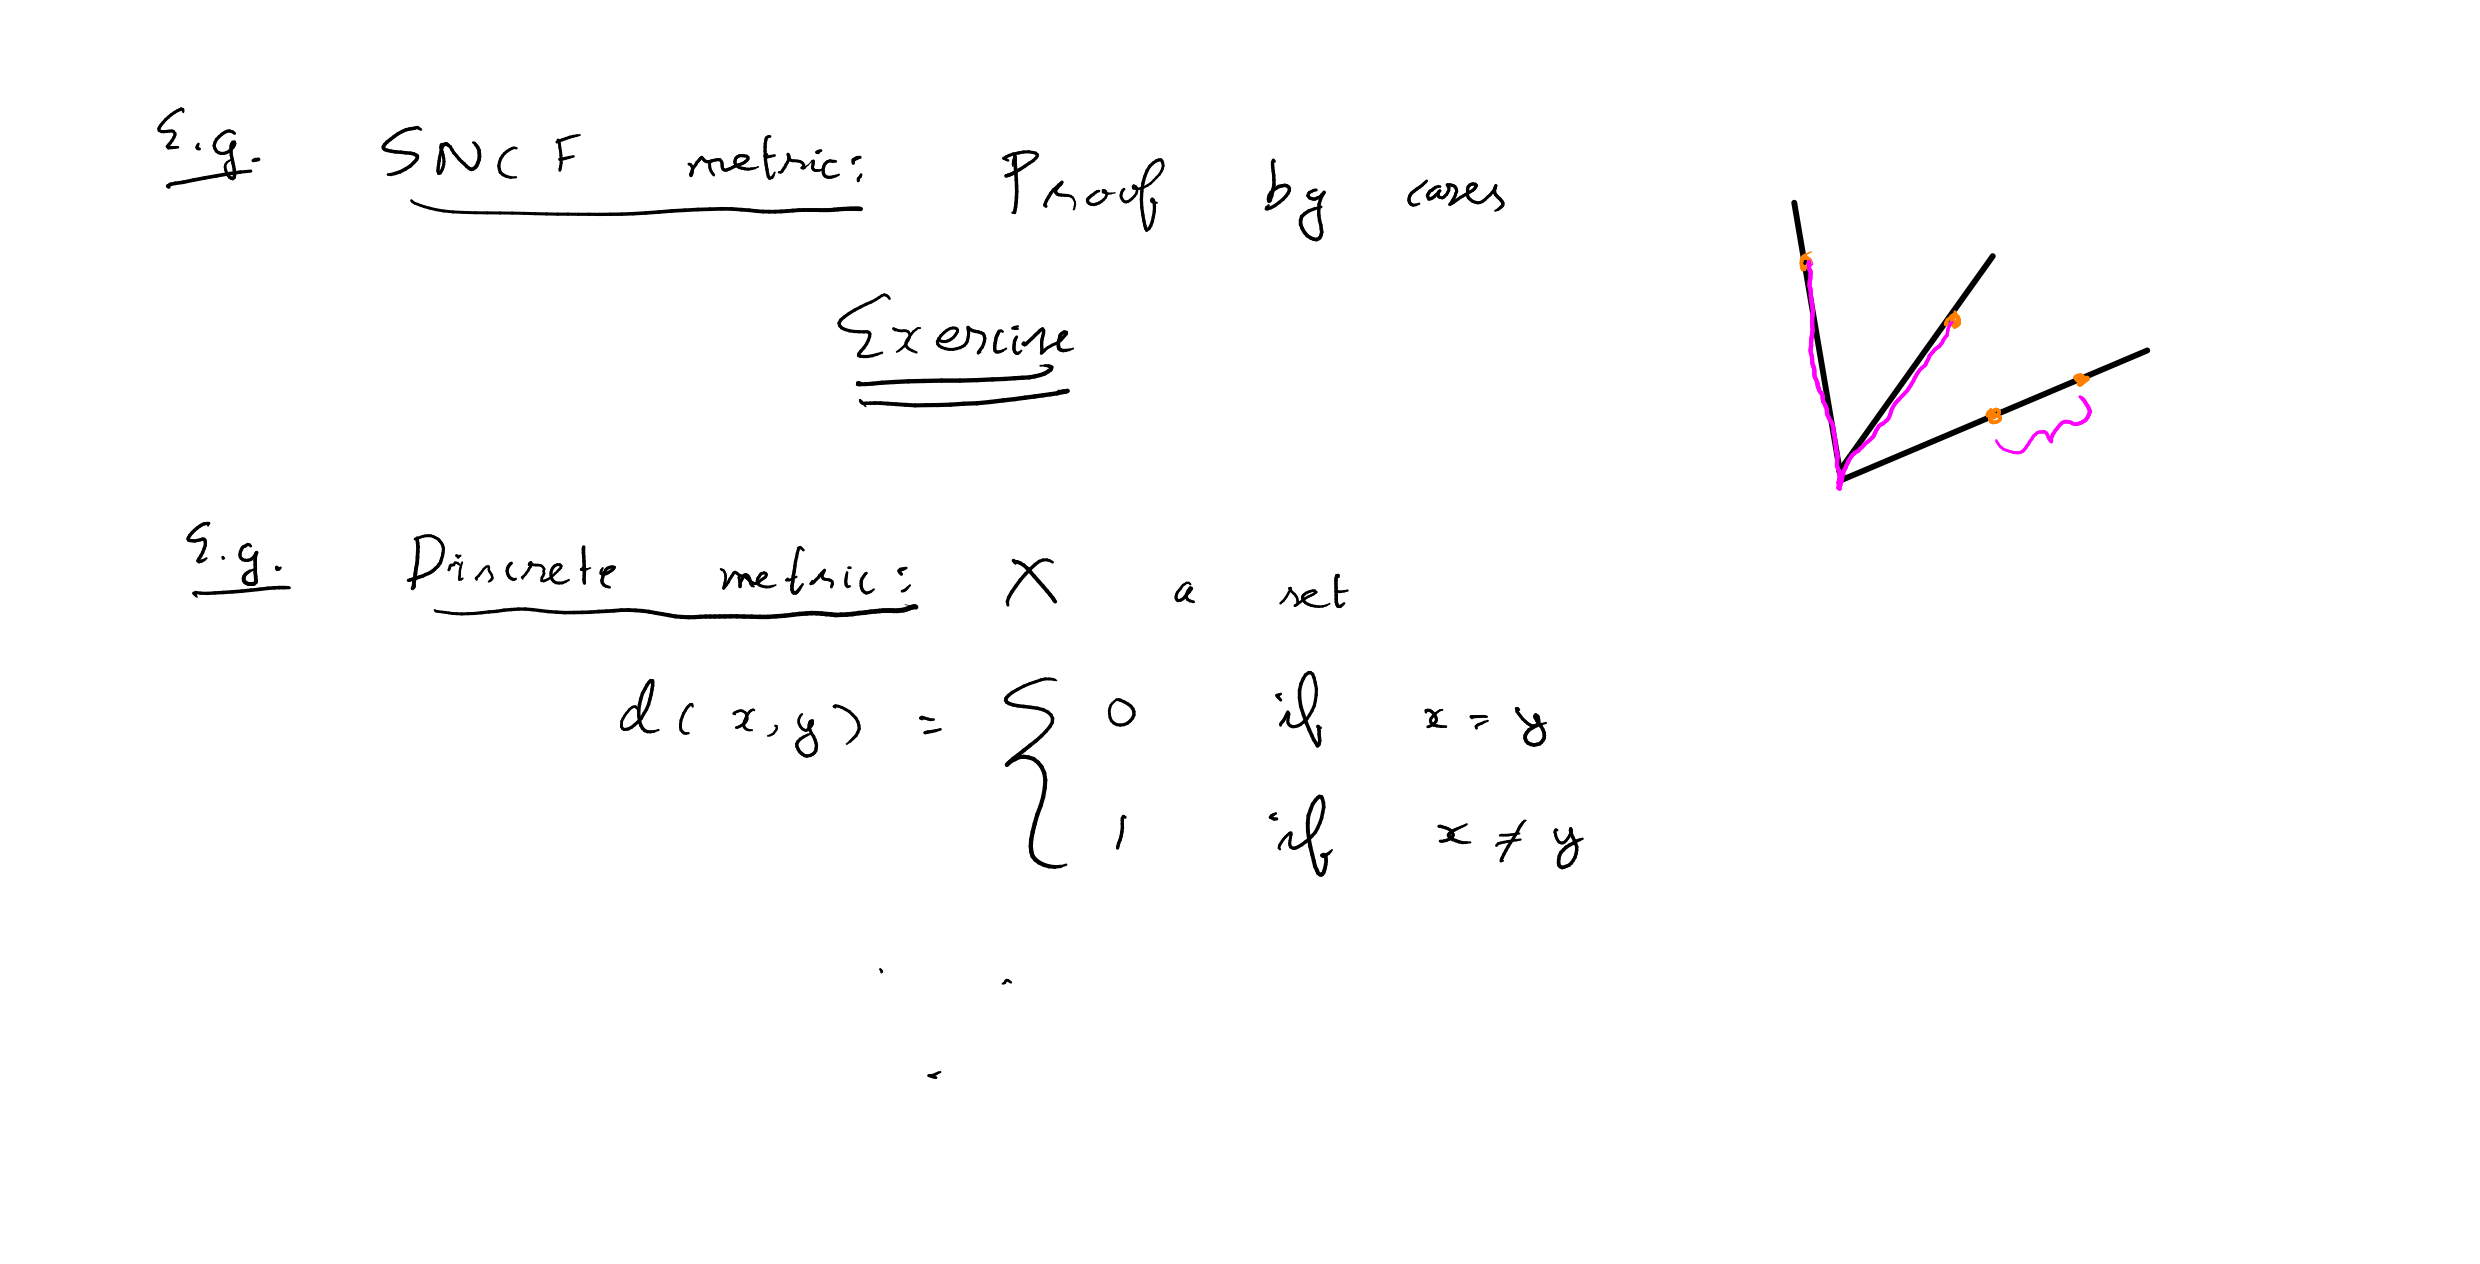 E.g. SNCF metric: Proof by cases
Exercise
E.g. Discrete metric: X a set
d(x,y) = { 0 if x = y
1 if x ≠ y